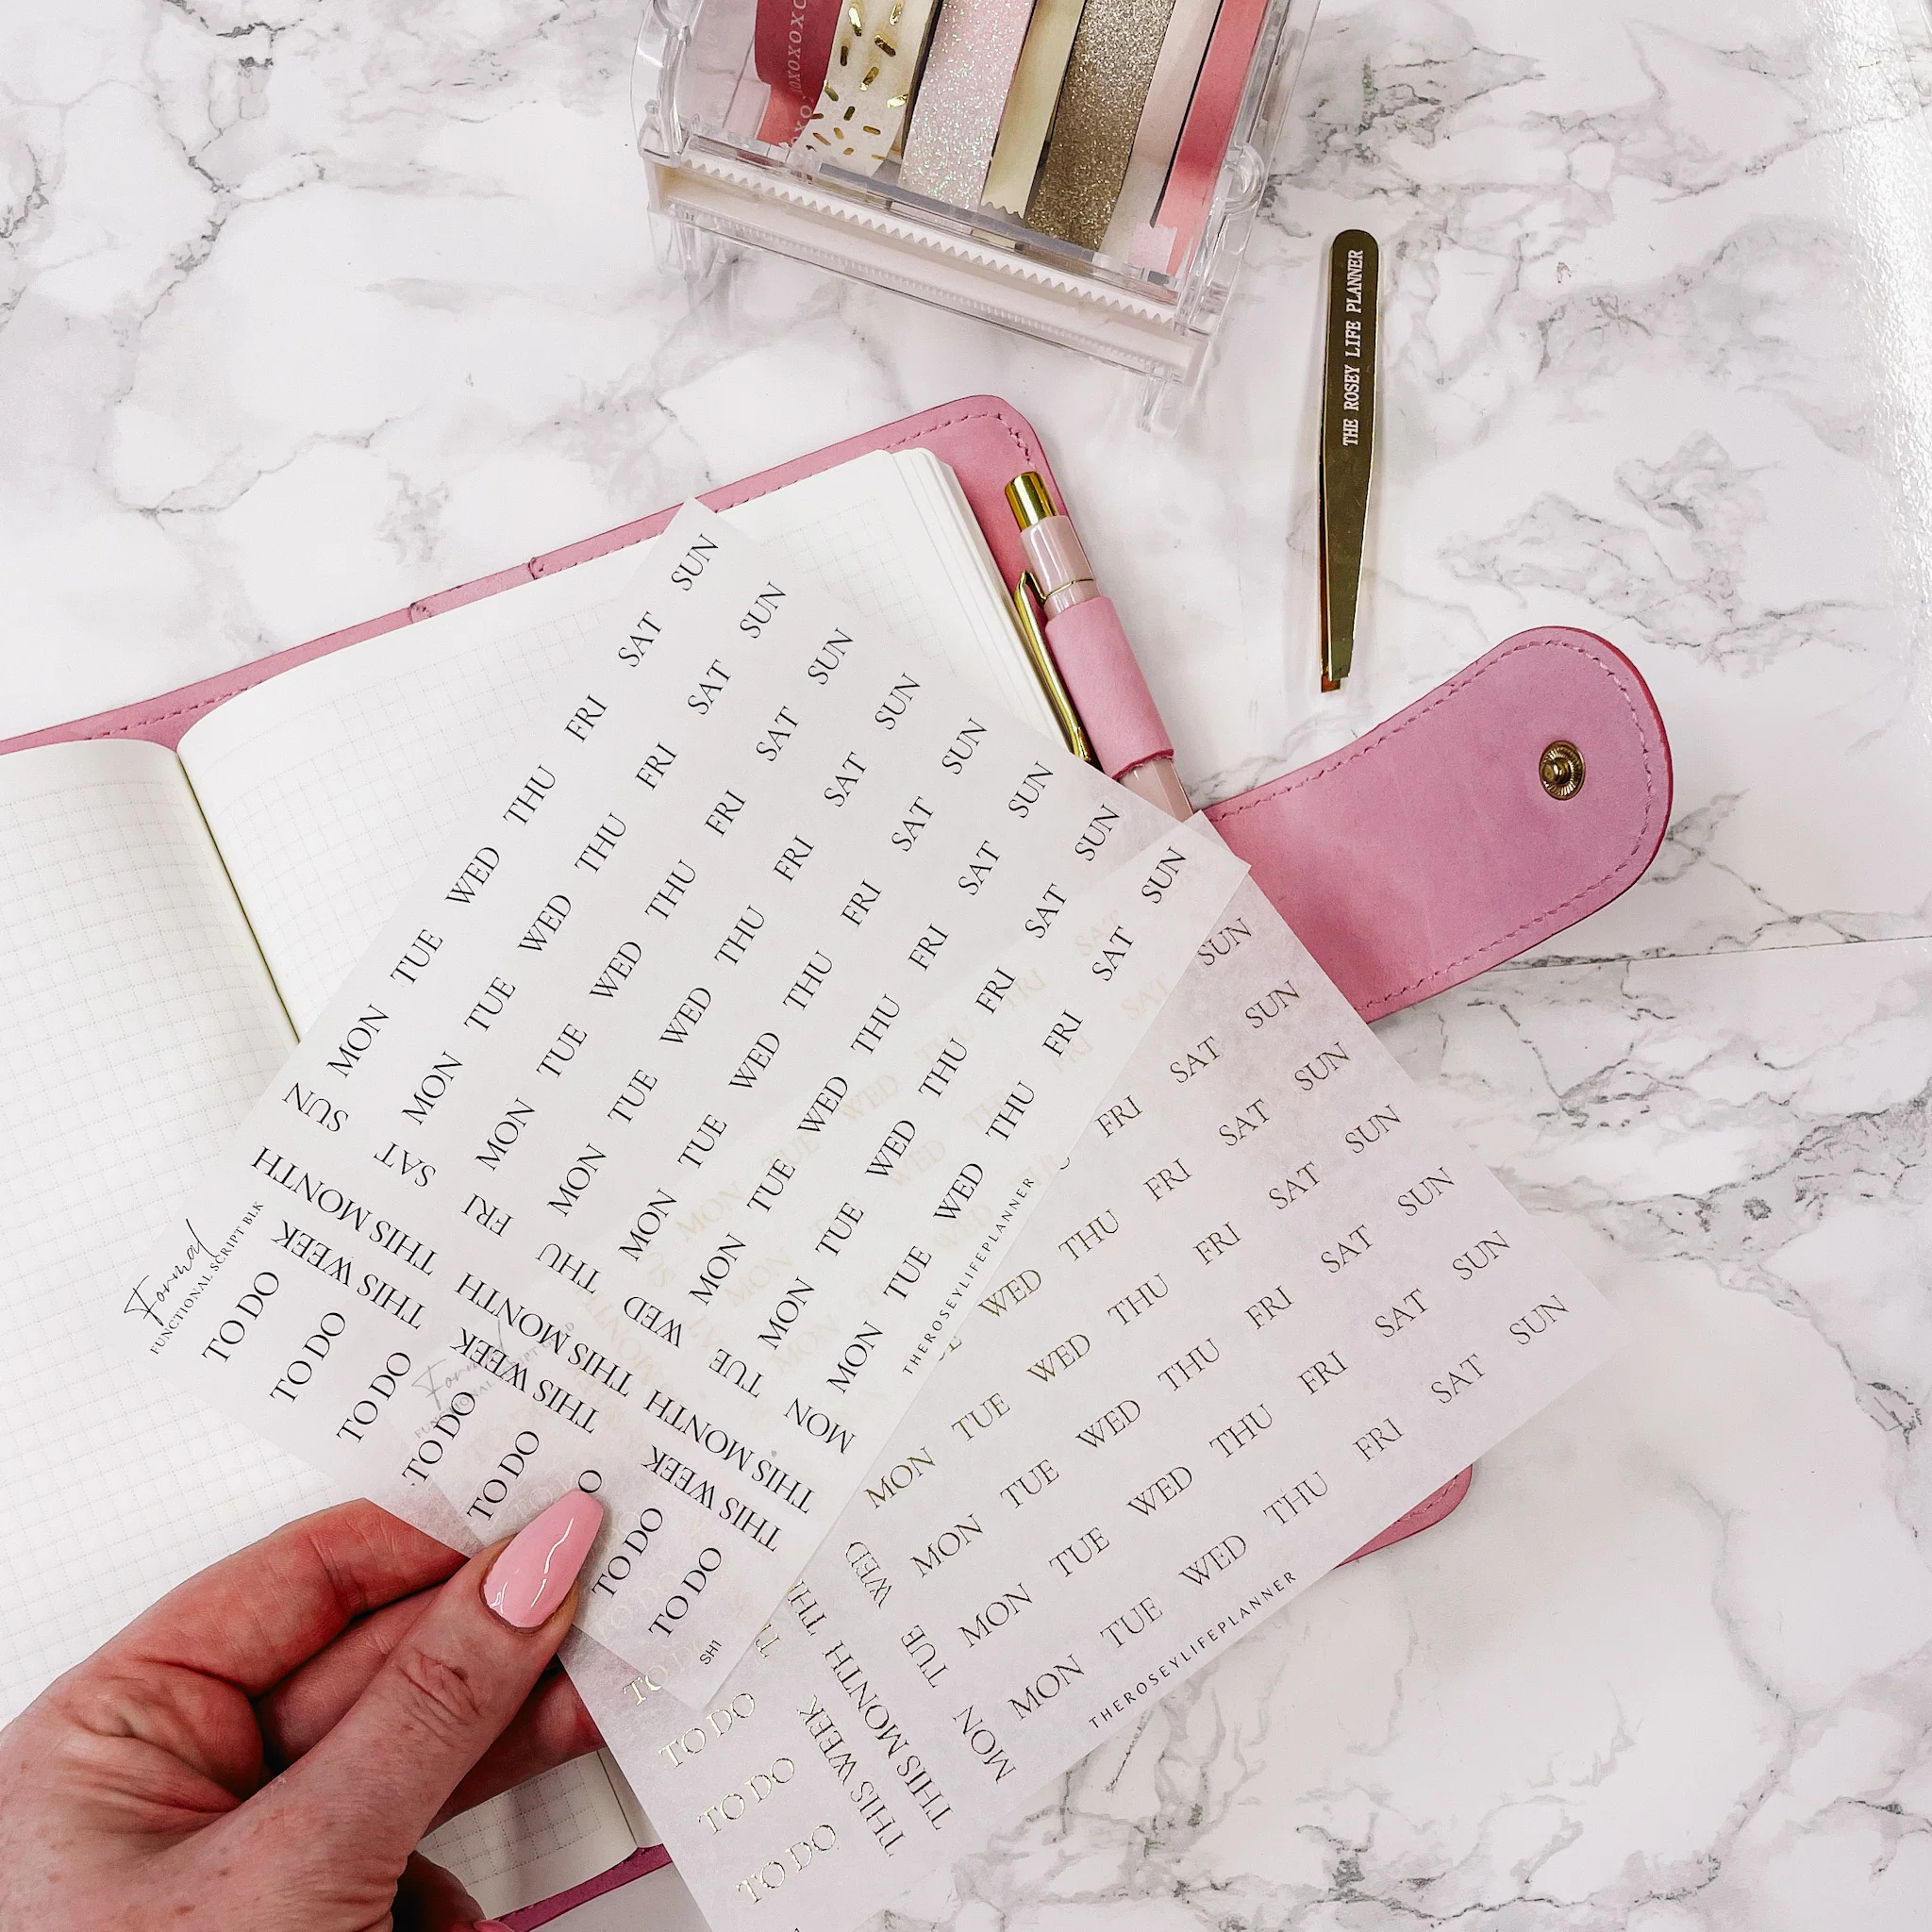 THE ROSEY LIFE PLANNER
Formal
FUNCTIONAL SCRIPT BLK
MON TUE WED THU FRI SAT SUN
MON TUE WED THU FRI SAT SUN
MON TUE WED THU FRI SAT SUN
MON TUE WED THU FRI SAT SUN
MON TUE WED THU FRI SAT SUN
MON TUE WED THU FRI SAT SUN
MON TUE WED THU FRI SAT SUN
MON TUE WED THU FRI SAT SUN
THEROSEYLIFEPLANNER
MON TUE WED THU FRI SAT SUN
THIS MONTH THIS MONTH THIS MONTH
THIS WEEK THIS WEEK THIS WEEK
TO DO
TO DO
TO DO
TO DO
TO DO
TO DO
TO DO
SH1
SUN
FRI SAT SUN
WED THU FRI SAT SUN
MON TUE WED THU FRI SAT SUN
MON TUE WED THU FRI SAT SUN
MON TUE WED THU FRI SAT SUN
MON TUE WED THU FRI SAT SUN
THEROSEYLIFEPLANNER
MON TUE WED
THIS MONTH
THIS WEEK
TO DO
TO DO
TO DO